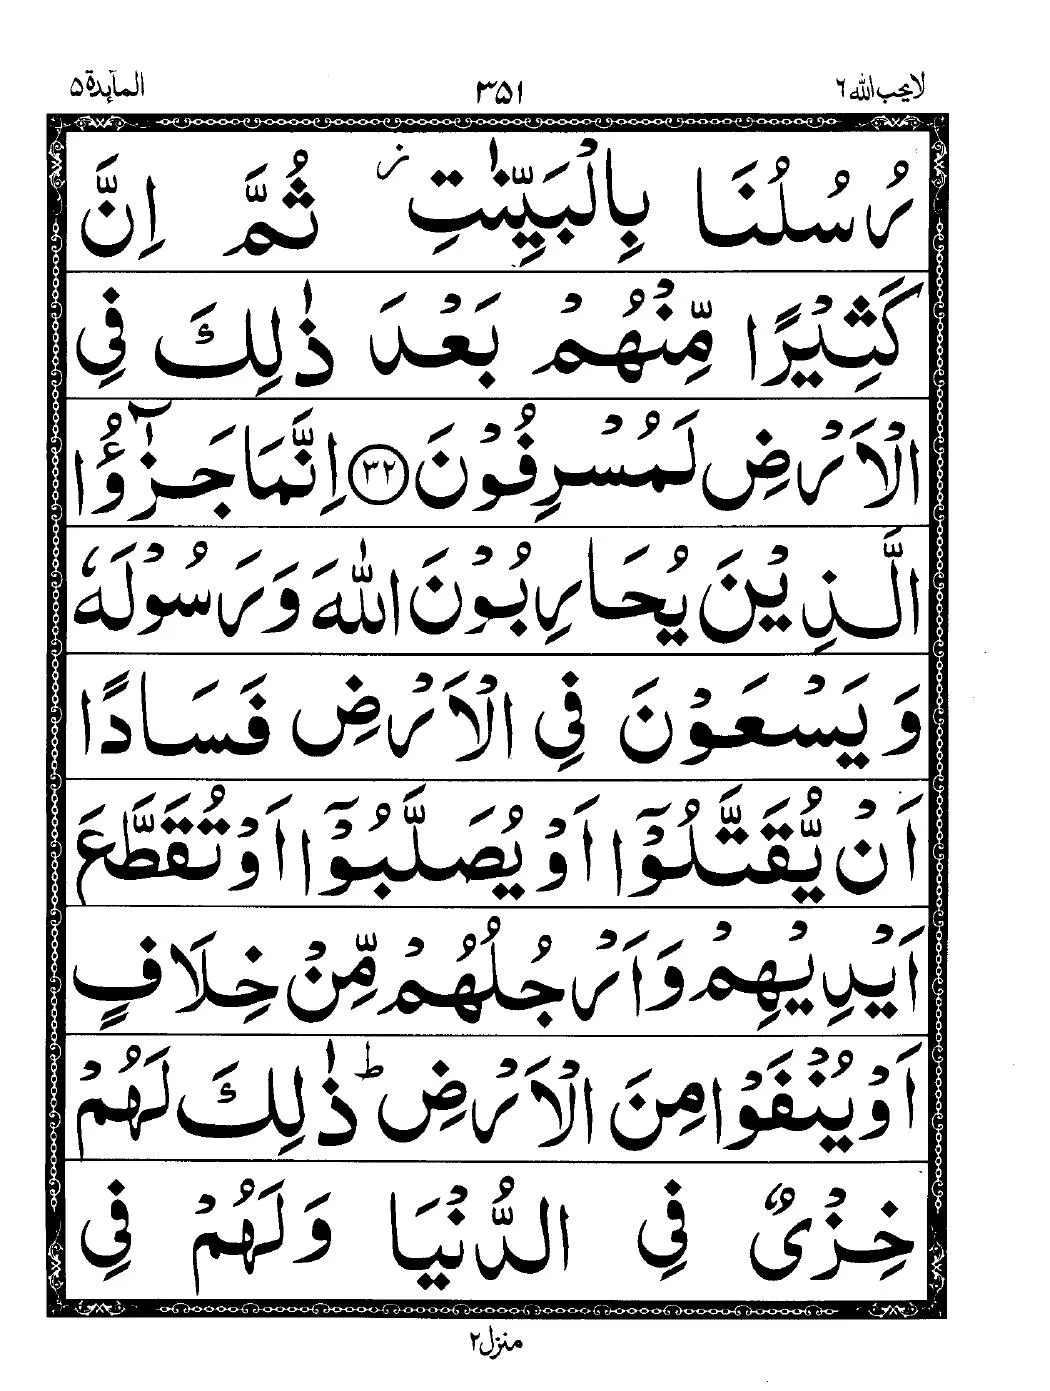 لا يحب الله ٦ ٣٥١ المآئدة ٥
رُسُلُنَا بِالْبَيِّنٰتِ ز ثُمَّ اِنَّ
كَثِيْرًا مِّنْهُمْ بَعْدَ ذٰلِكَ فِي
الْاَرْضِ لَمُسْرِفُوْنَ ٣٢ اِنَّمَا جَزٰٓؤُا
الَّذِيْنَ يُحَارِبُوْنَ اللّٰهَ وَرَسُوْلَهٗ
وَيَسْعَوْنَ فِي الْاَرْضِ فَسَادًا
اَنْ يُّقَتَّلُوْٓا اَوْ يُصَلَّبُوْٓا اَوْ تُقَطَّعَ
اَيْدِيْهِمْ وَاَرْجُلُهُمْ مِّنْ خِلَافٍ
اَوْ يُنْفَوْا مِنَ الْاَرْضِ ط ذٰلِكَ لَهُمْ
خِزْيٌ فِي الدُّنْيَا وَلَهُمْ فِي
منزل ٢